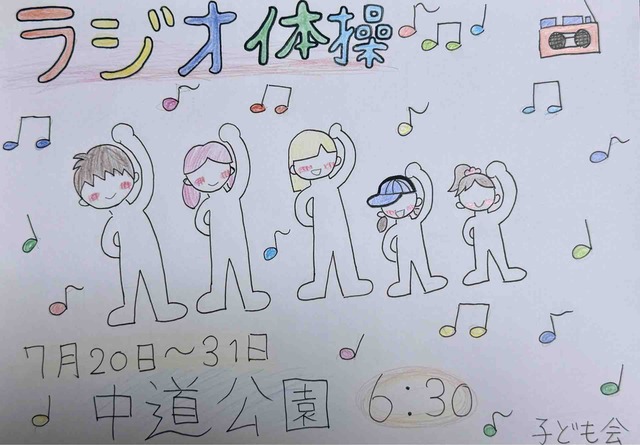 ラジオ体操
7月20日～31日
中道公園 6:30
子ども会